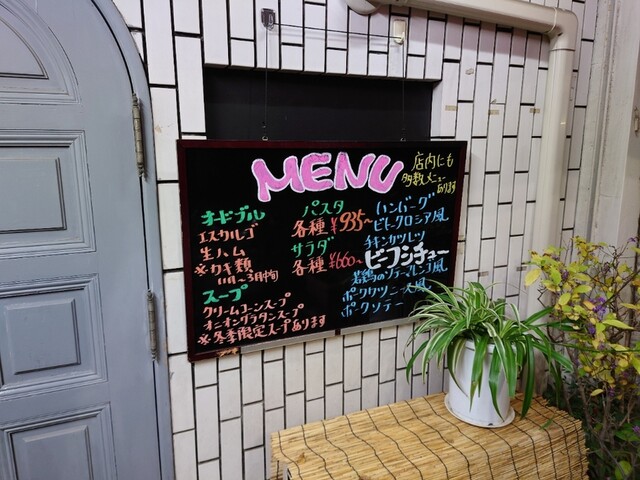 MENU
店内にも
多数メニュー
あります
オードブル
エスカルゴ
生ハム
※カキ類
11月〜3月中旬
スープ
クリームコーンスープ
オニオングラタンスープ
※冬季限定スープあります
パスタ
各種¥935〜
サラダ
各種¥660〜
ハンバーグ
ビトークロシア風
チキンカツレツ
ビーフシチュー
若鶏のソテーマレンゴ風
ポークカツ
ポークソテー